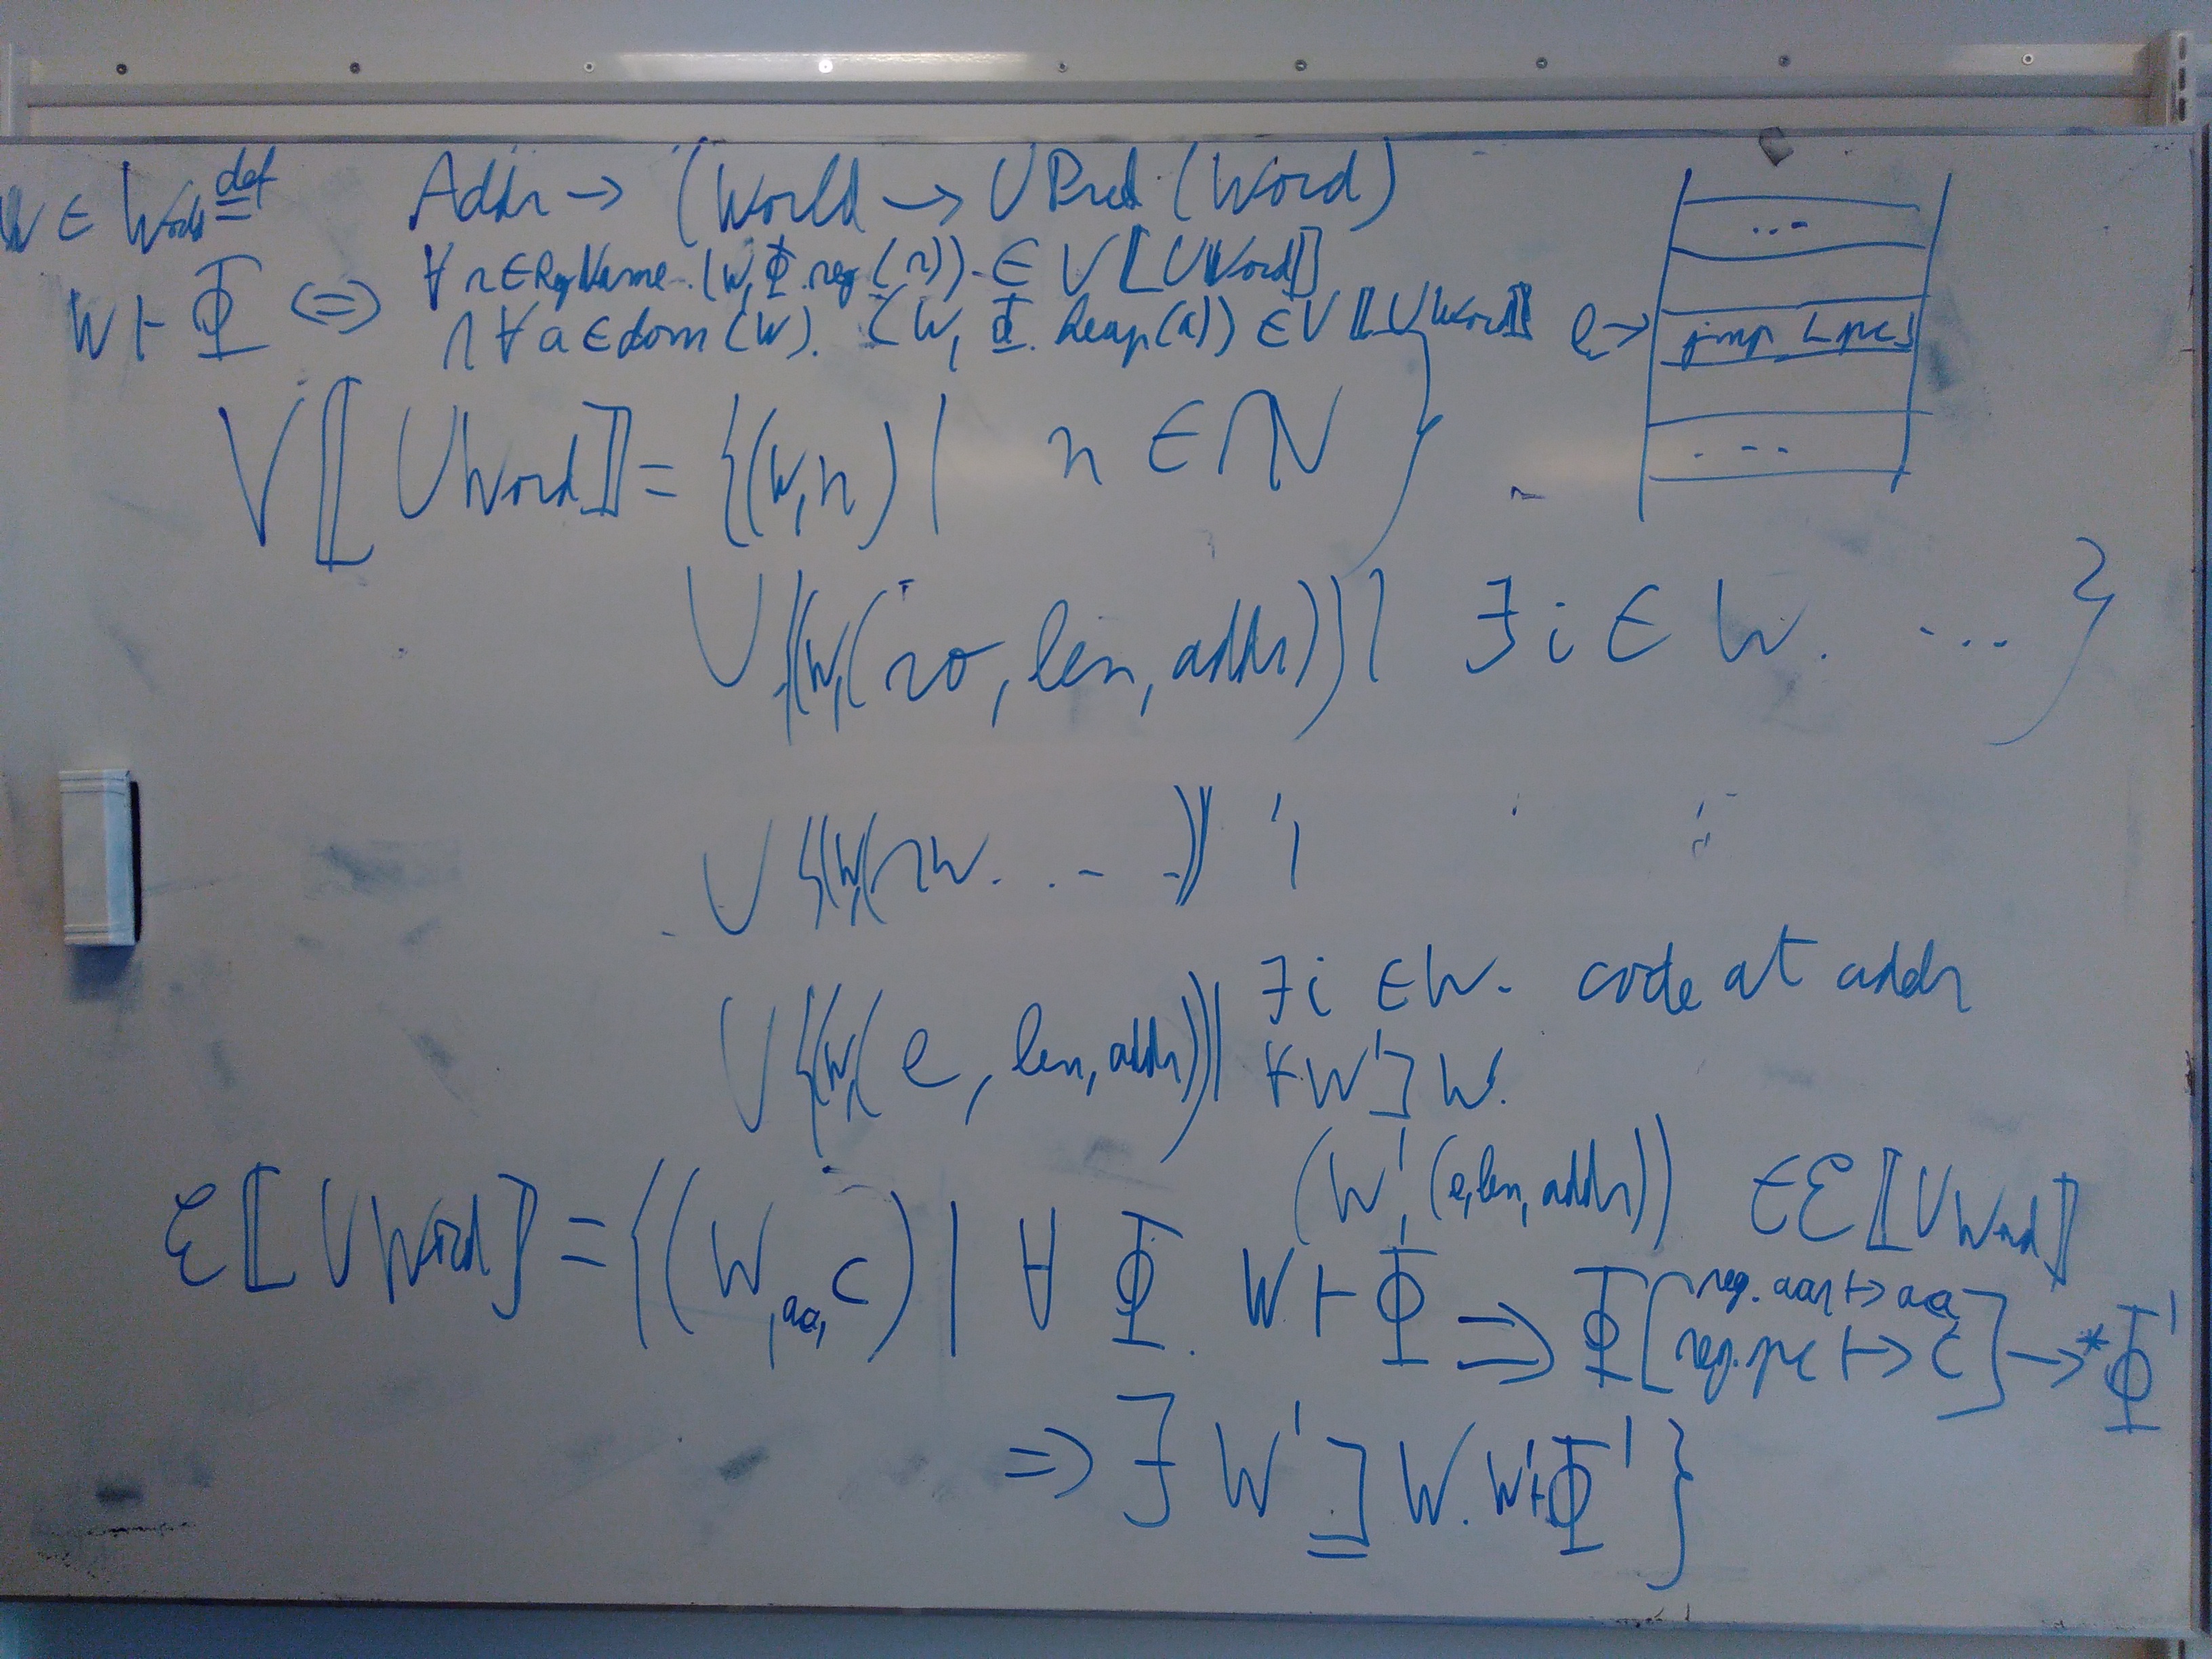 W ∈ World def= Addr → (World → UPred (Word)
W ⊢ Φ ⇔ ∀ r ∈ RegName. (W, Φ.reg(r)) ∈ V⟦UWord⟧
∧ ∀ a ∈ dom(W). (W, Φ.heap(a)) ∈ V⟦UWord⟧
...
e → jmp [pc]
...
V⟦UWord⟧ = {(W,n) | n ∈ ℕ }
∪ {(W,(ro, len, addr)) | ∃ i ∈ W. ... }
∪ {(W,(rw. ... ))
∪ {(W,(e, len, addr)) | ∃ i ∈ W. code at addr
∀ W' ⊒ W.
(W', (e, len, addr)) ∈ ℰ⟦UWord⟧
ℰ⟦UWord⟧ = {(W, aa, c) | ∀ Φ. W ⊢ Φ ⇒ Φ[reg.aar ↦ aa
reg.pc ↦ c] →* Φ'
⇒ ∃ W' ⊒ W. W' ⊢ Φ' }